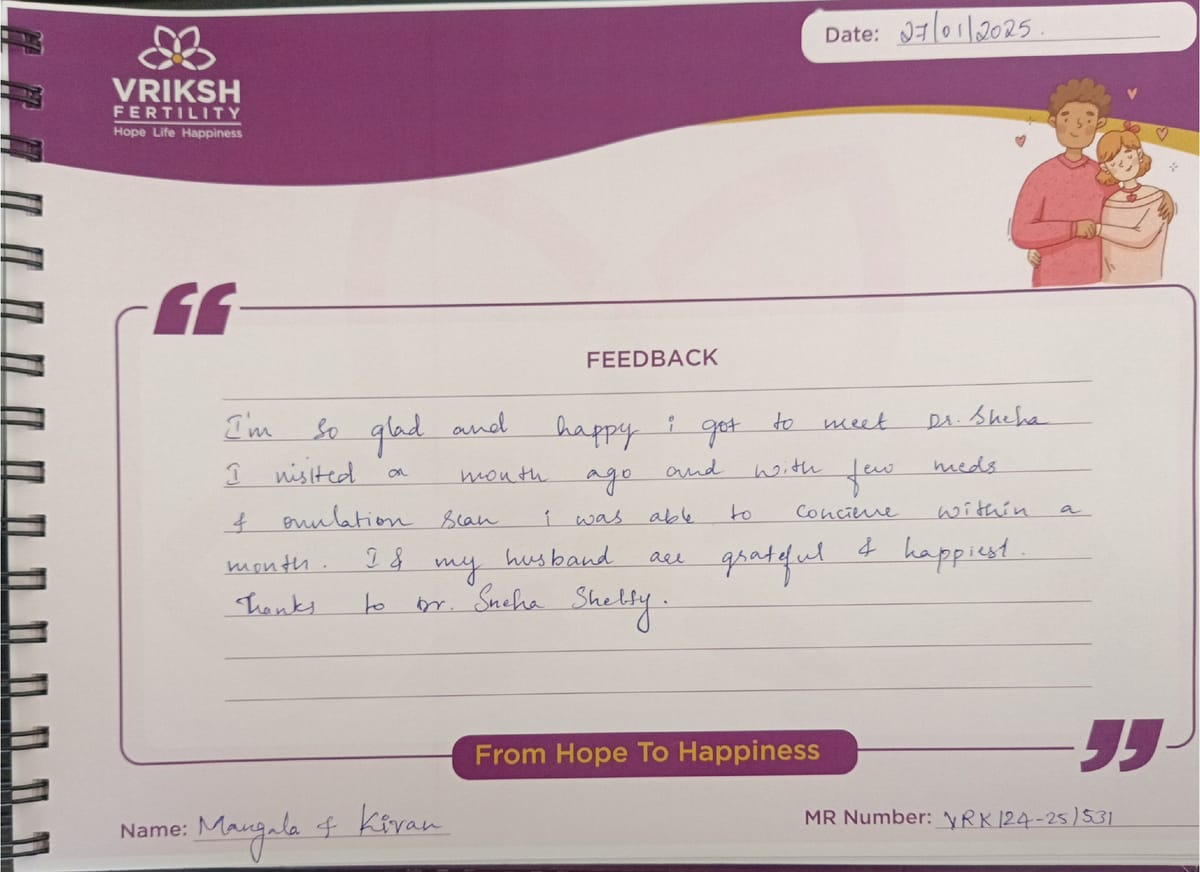 VRIKSH
FERTILITY
Hope Life Happiness
Date: 27/01/2025.
FEEDBACK
I'm so glad and happy i got to meet Dr. Sneha
I visited a month ago and with few meds
& ovulation scan i was able to concieve within a
month. I & my husband are grateful & happiest.
Thanks to Dr. Sneha Shetty.
From Hope To Happiness
Name: Mangala & Kiran
MR Number: VRK/24-25/531